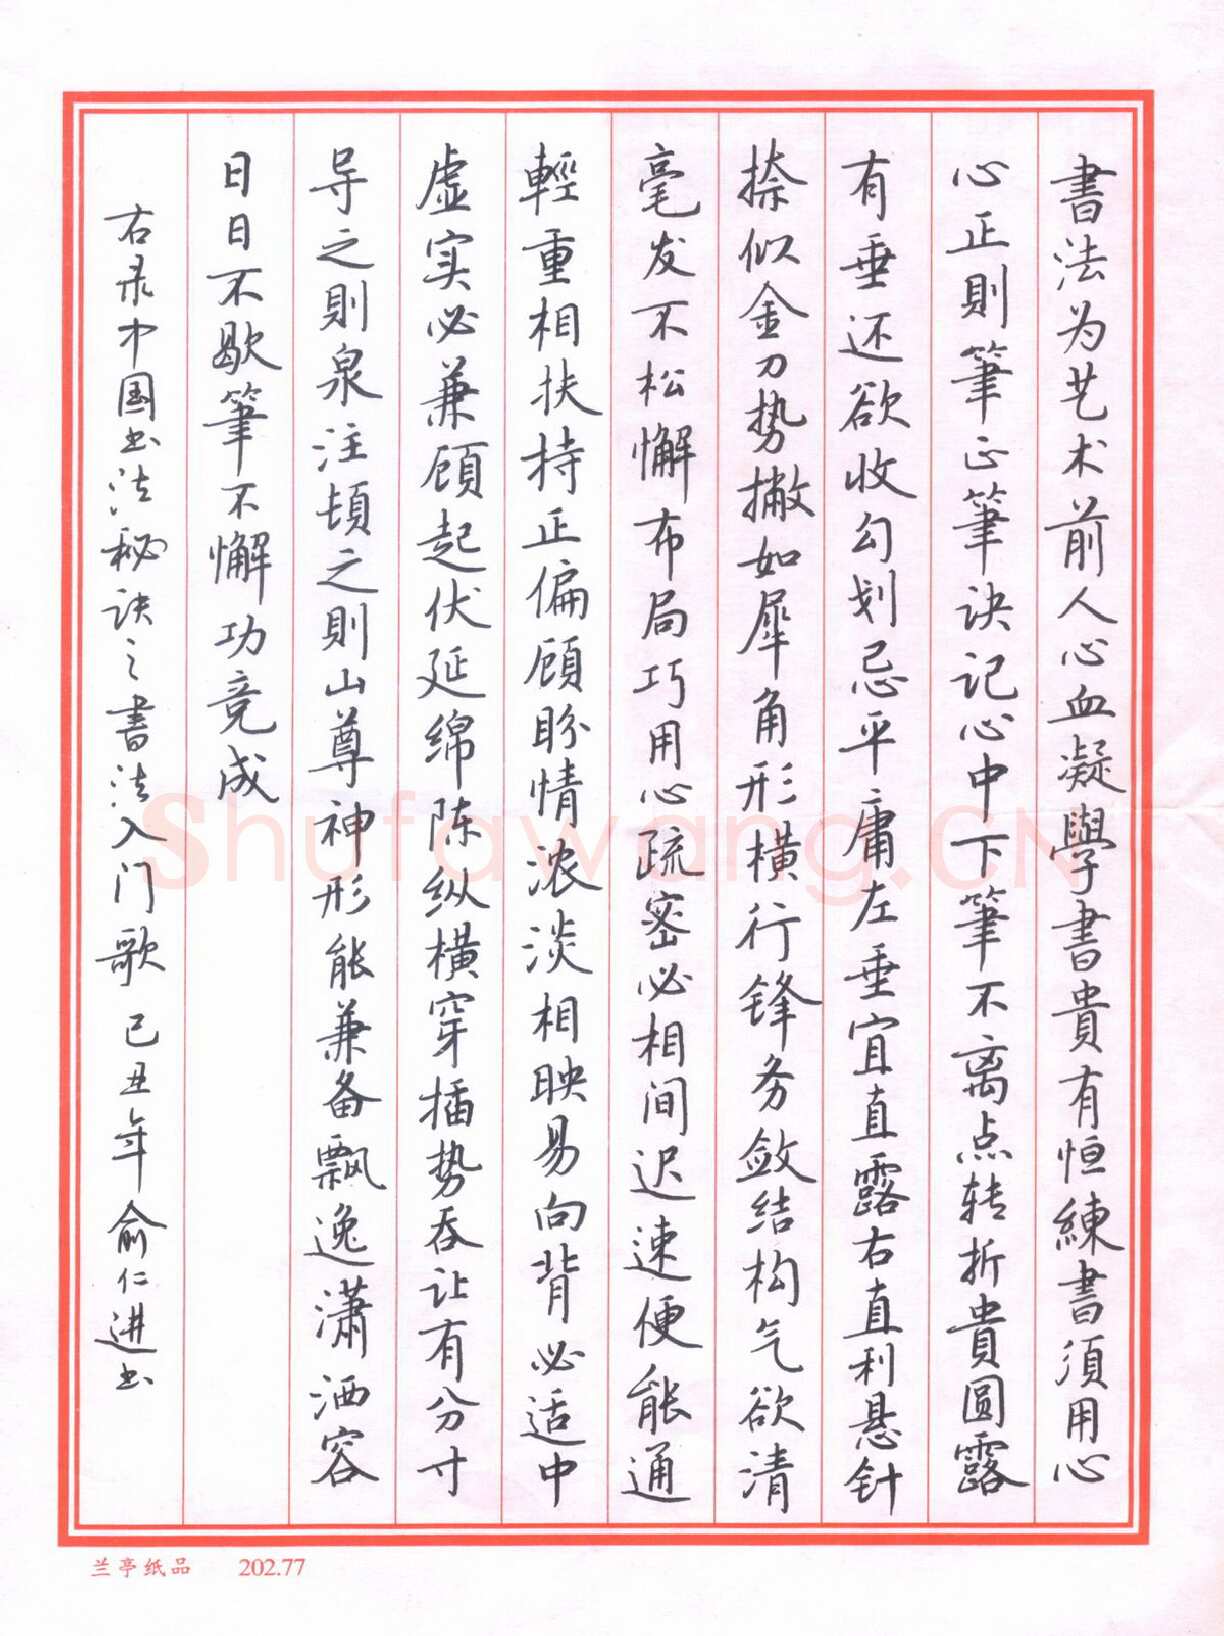 書法为艺术前人心血凝學書貴有恒練書須用心
心正則筆正筆诀记心中下筆不离点转折貴圆露
有垂还欲收勾划忌平庸左垂宜直露右直利悬针
捺似金刀势撇如犀角形横行锋务敛结构气欲清
毫发不松懈布局巧用心疏密必相间迟速便能通
輕重相扶持正偏顾盼情浓淡相映易向背必适中
虚实必兼顾起伏延绵陈纵横穿插势吞让有分寸
导之則泉注頓之則山尊神形能兼备飘逸潇洒容
日日不歇筆不懈功竞成
右录中国书法秘诀之書法入门歌己丑年俞仁进书
Shufawang.CN
兰亭纸品 202.77